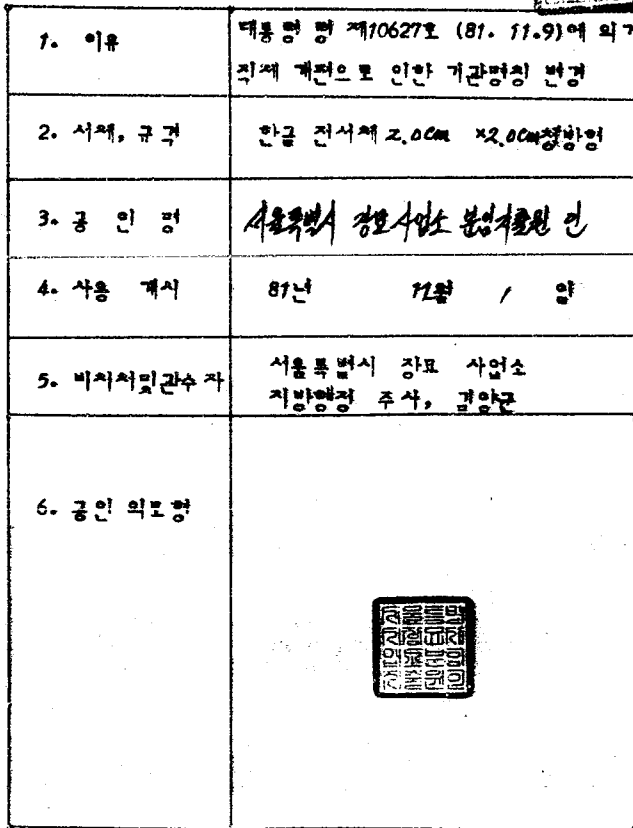 1. 이유
대통령 령 제10627호 (81. 11.9)에 의거
직제 개편으로 인한 기관명칭 변경
2. 서체, 규격
한글 전서체 2.0cm ×2.0cm정방형
3. 공 인 명
서울특별시 장묘사업소 분임지출원 인
4. 사용 개시
81년 11월 1 일
5. 비치처및관수자
서울특별시 장묘 사업소
지방행정 주사, 김양근
6. 공인 의모형